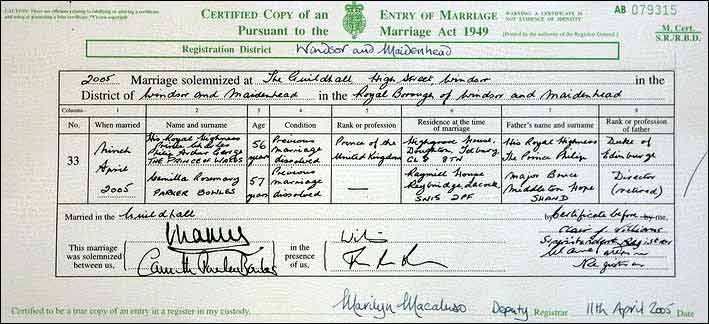 CAUTION:- There are offences relating to falsifying or altering a certificate
and using or possessing a false certificate. ©Crown copyright
CERTIFIED COPY OF AN ENTRY OF MARRIAGE
PURSUANT TO THE MARRIAGE ACT 1949
WARNING: A CERTIFICATE IS
NOT EVIDENCE OF IDENTITY
AB 079315
[Printed by authority of the Registrar General.]
M. Cert.
S.R./R.B.D.
Registration District Windsor and Maidenhead
2005 Marriage solemnized at The Guildhall High Street Windsor in the
District of Windsor and Maidenhead in the Royal Borough of Windsor and Maidenhead
Columns:- 1 2 3 4 5 6 7 8
No. When married Name and surname Age Condition Rank or profession Residence at the time of marriage Father's name and surname Rank or profession of father
33 Ninth April 2005
His Royal Highness Prince Charles Philip Arthur George THE PRINCE OF WALES 56 years Previous marriage dissolved Prince of the United Kingdom Highgrove House Doughton Tetbury GL8 8TN His Royal Highness The Prince Philip Duke of Edinburgh
Camilla Rosemary PARKER BOWLES 57 years Previous marriage dissolved — Raymill House Reybridge Lacock SN15 2PF Major Bruce Middleton Hope SHAND Director (retired)
Married in the Guildhall by Certificate before by me,
This marriage was solemnized between us,
Camilla Parker Bowles
in the presence of us,
Clair J Williams
Superintendent Registrar
Registrar
Certified to be a true copy of an entry in a register in my custody.
Marilyn Macaluso Deputy Registrar 11th April 2005 Date